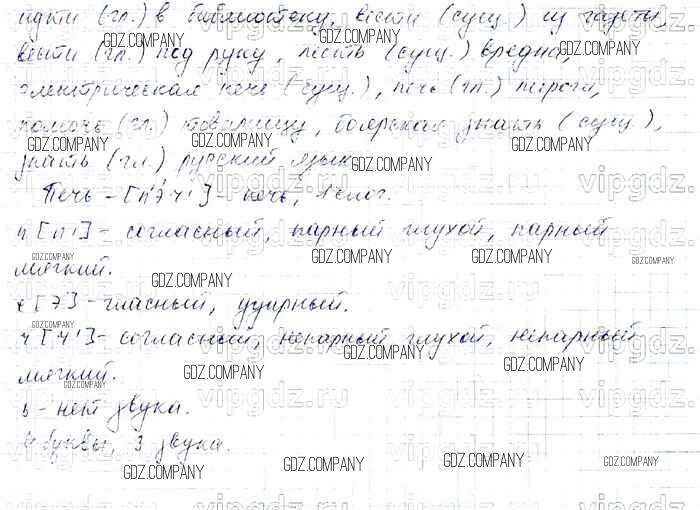 идти (гл.) в библиотеку, вести (сущ.) из газеты,
вести (гл.) под руку, лесть (сущ.) вредна,
электрическая печь (сущ.), печь (гл.) пироги,
помочь (гл.) товарищу, боярская знать (сущ.),
знать (гл.) русский язык.
Печь – [п'эч'] – печь, 1 слог.
п [п'] – согласный, парный глухой, парный
мягкий.
е [э] – гласный, ударный.
ч [ч'] – согласный, непарный глухой, непарный
мягкий.
ь – нет звука.
4 буквы, 3 звука.
GDZ.COMPANY
vipgdz.ru